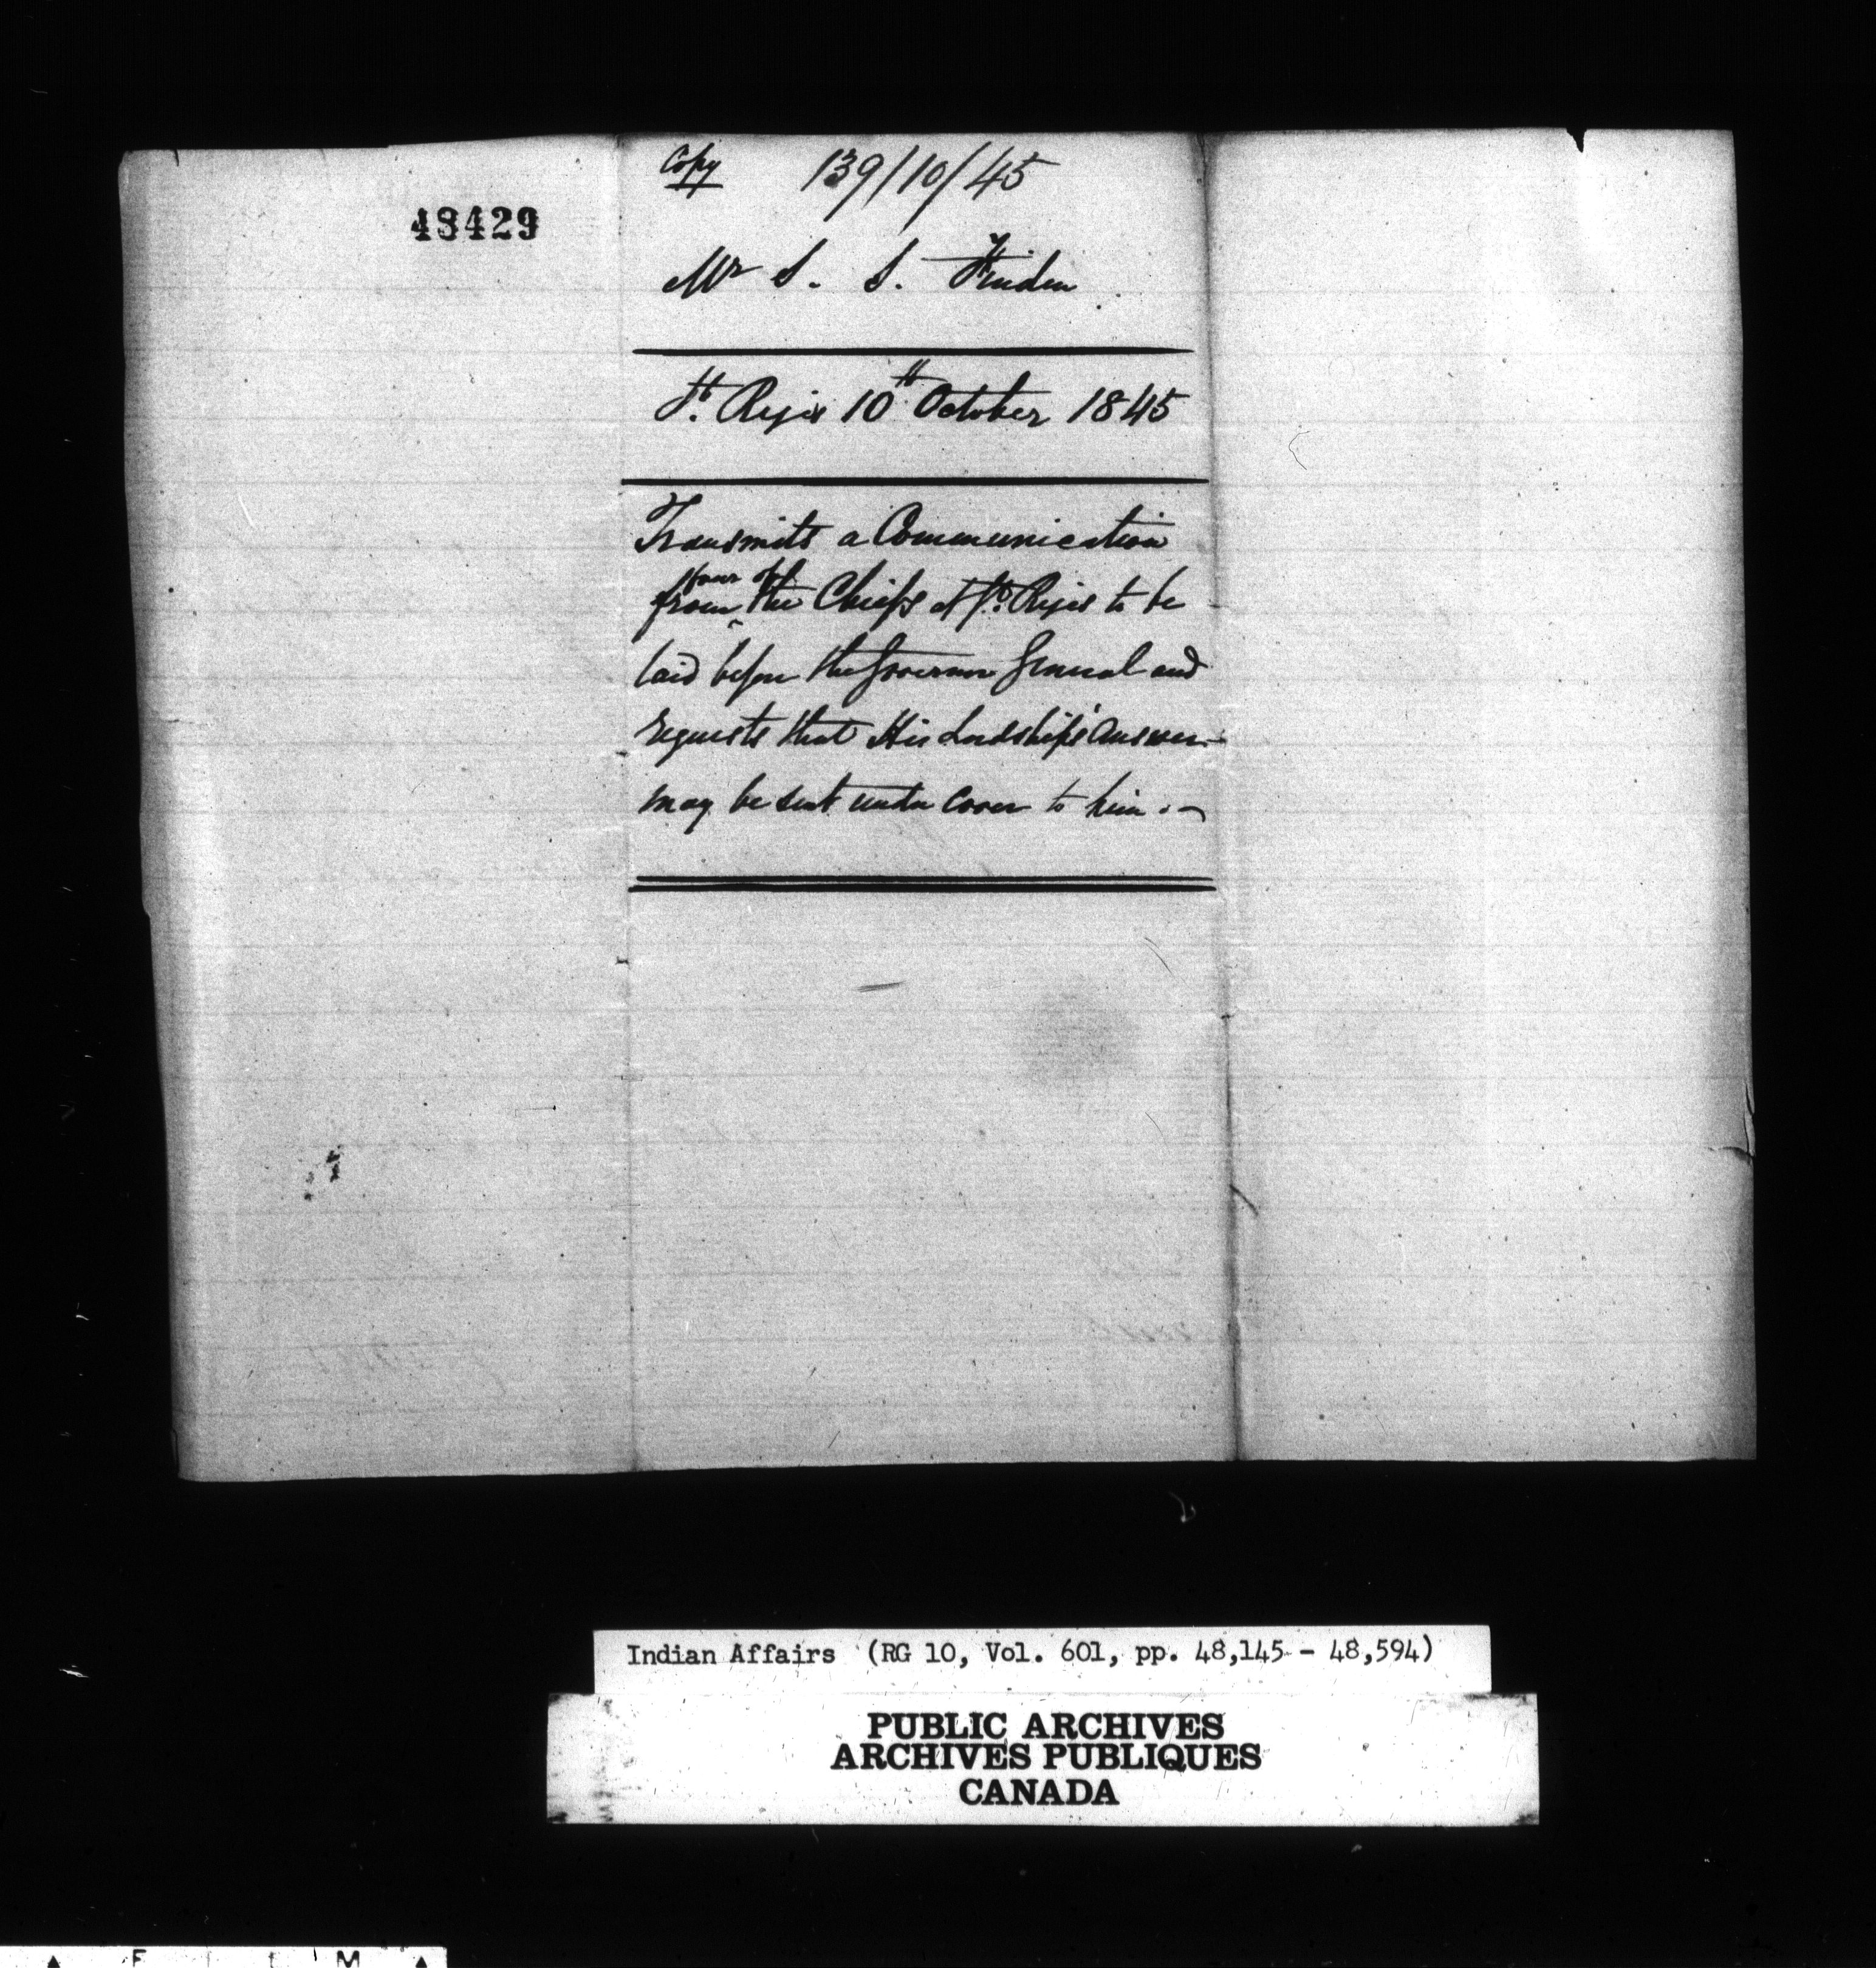 48429
Copy 139/10/45
Mr S. S.
St. Regis 10th October 1845
Transmits a Communication
from four of the Chiefs of St. Regis to be
laid before the Governor General and
requests that His Lordship's Answer
may be sent under cover to him. -
Indian Affairs (RG 10, Vol. 601, pp. 48,145 - 48,594)
PUBLIC ARCHIVES
ARCHIVES PUBLIQUES
CANADA
F I L M